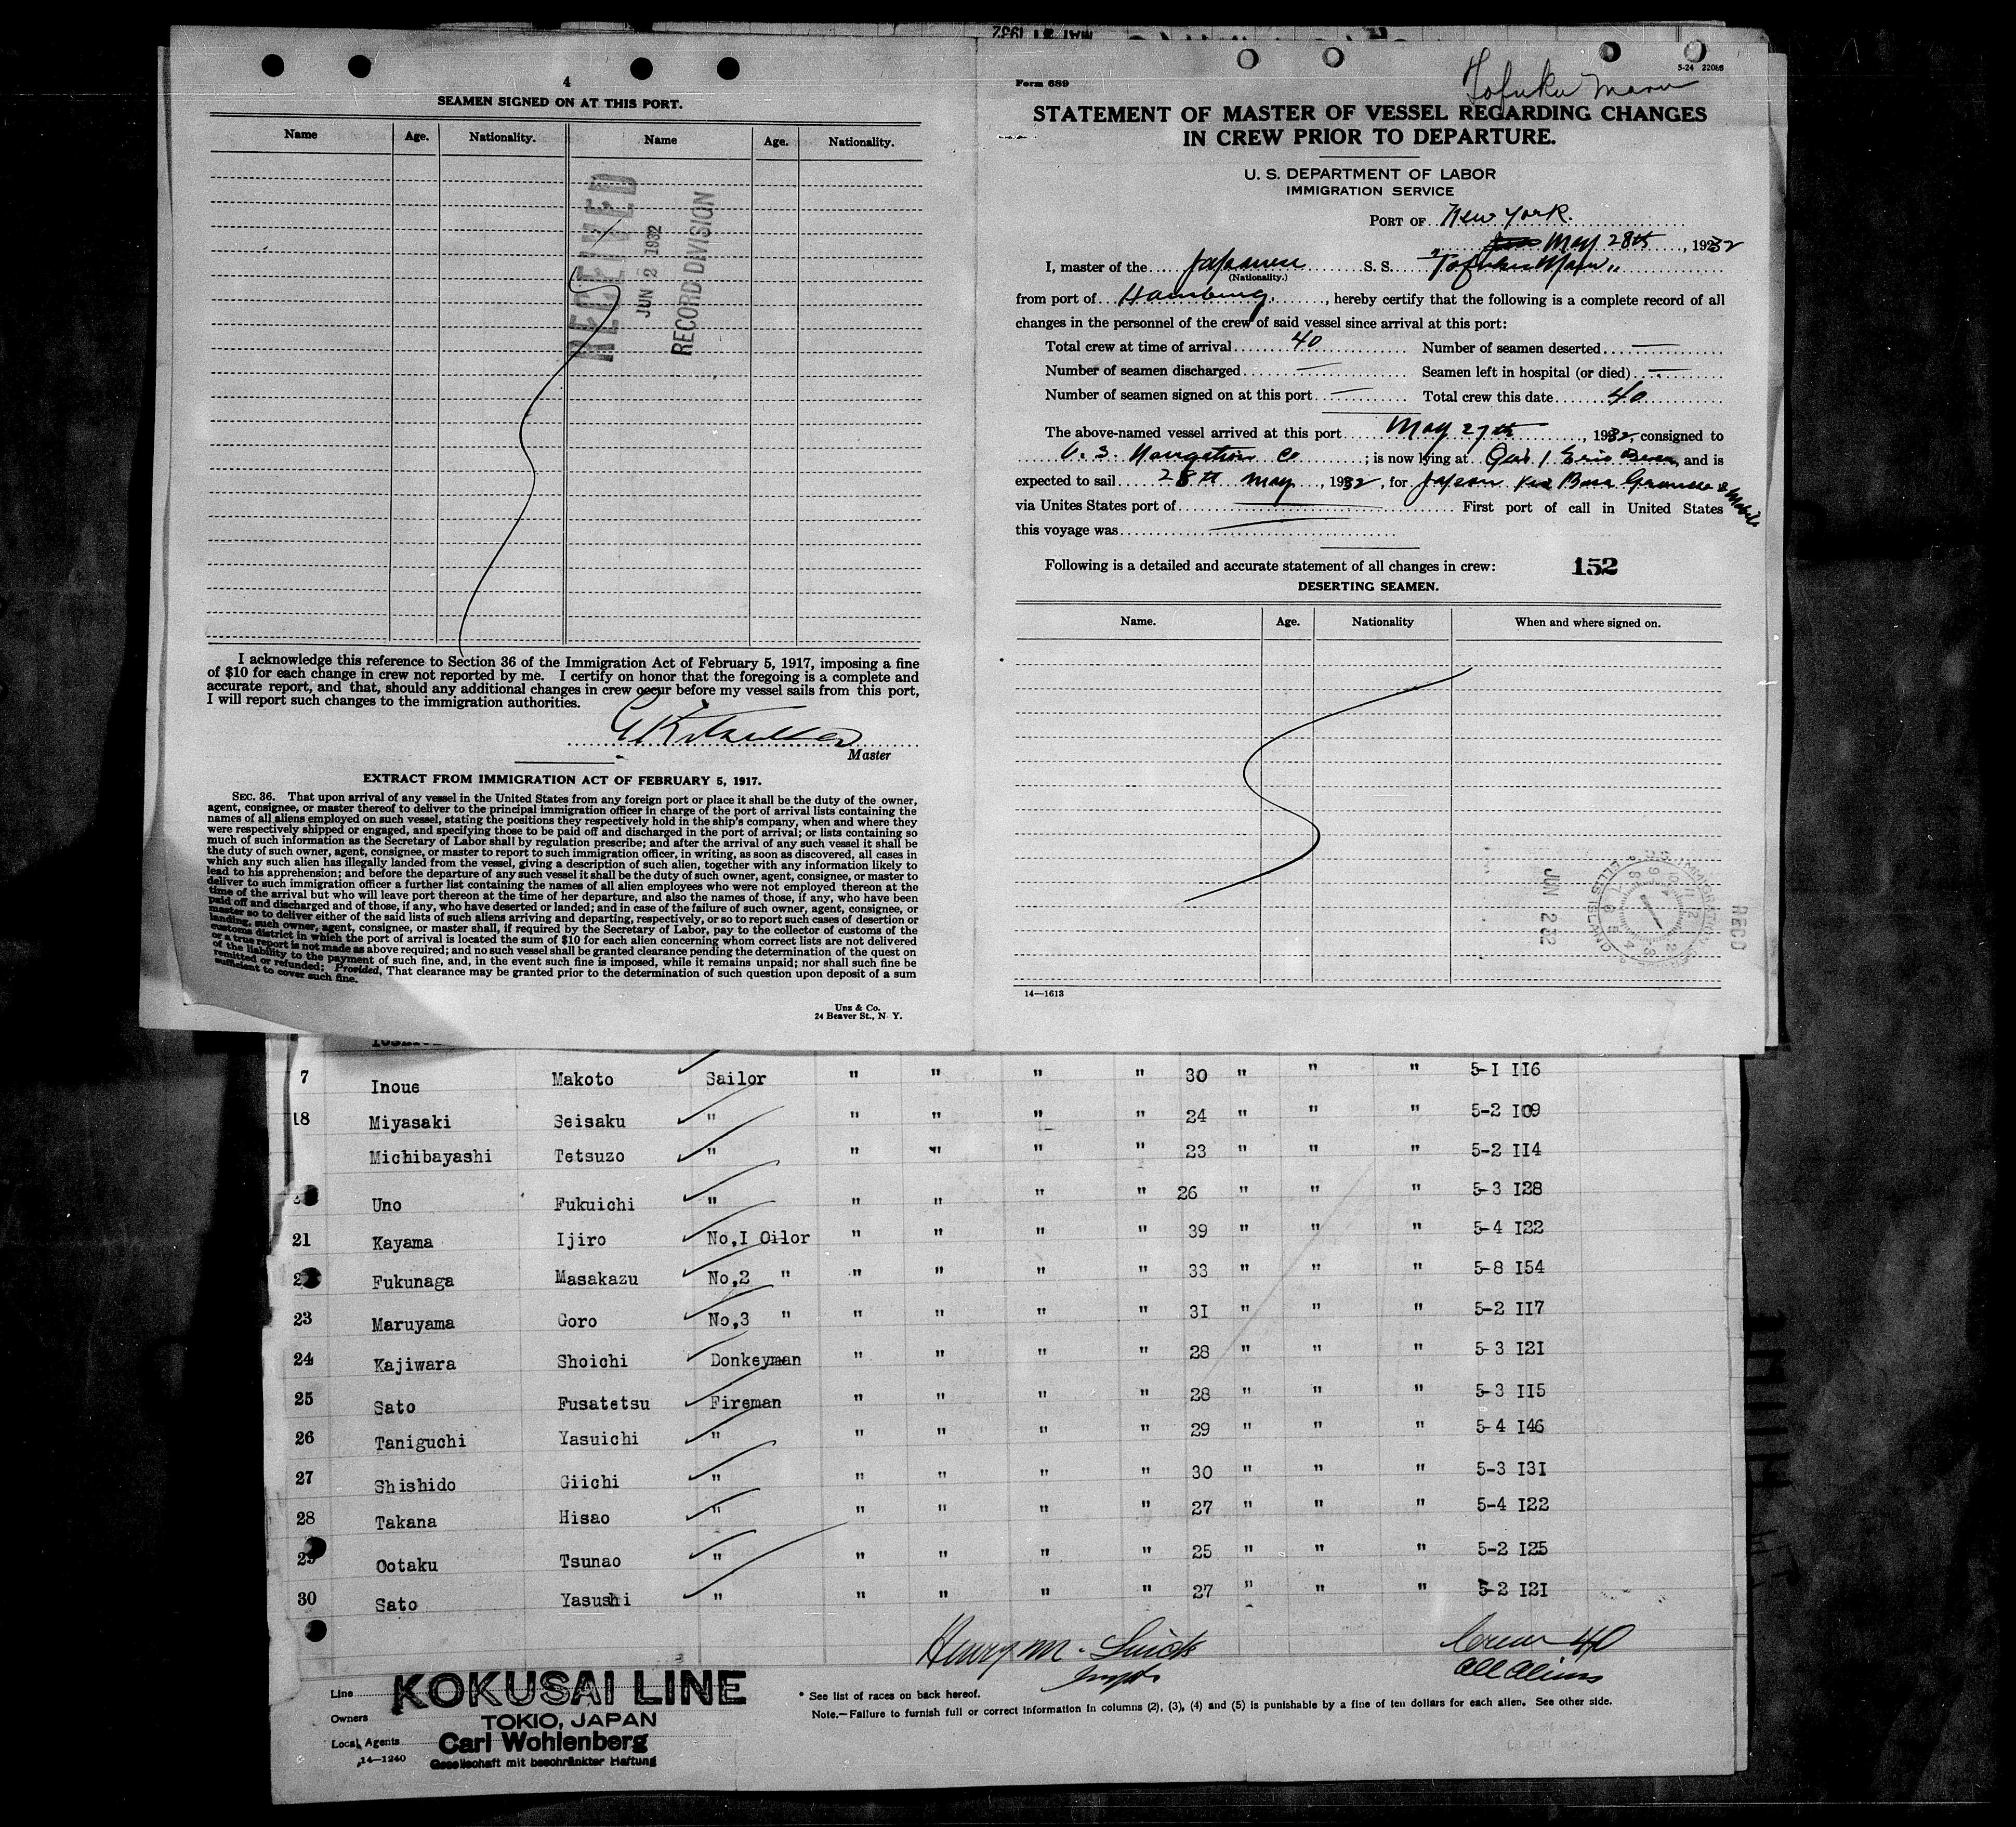 4
SEAMEN SIGNED ON AT THIS PORT.
Name Age. Nationality. Name Age. Nationality.
RECEIVED
JUN 2 1932
RECORD DIVISION
I acknowledge this reference to Section 36 of the Immigration Act of February 5, 1917, imposing a fine
of $10 for each change in crew not reported by me. I certify on honor that the foregoing is a complete and
accurate report, and that, should any additional changes in crew occur before my vessel sails from this port,
I will report such changes to the immigration authorities.
Master
EXTRACT FROM IMMIGRATION ACT OF FEBRUARY 5, 1917.
SEC. 36. That upon arrival of any vessel in the United States from any foreign port or place it shall be the duty of the owner,
agent, consignee, or master thereof to deliver to the principal immigration officer in charge of the port of arrival lists containing the
names of all aliens employed on such vessel, stating the positions they respectively hold in the ship's company, when and where they
were respectively shipped or engaged, and specifying those to be paid off and discharged in the port of arrival; or lists containing so
much of such information as the Secretary of Labor shall by regulation prescribe; and after the arrival of any such vessel it shall be
the duty of such owner, agent, consignee, or master to report to such immigration officer, in writing, as soon as discovered, all cases in
which any such alien has illegally landed from the vessel, giving a description of such alien, together with any information likely to
lead to his apprehension; and before the departure of any such vessel it shall be the duty of such owner, agent, consignee, or master to
deliver to such immigration officer a further list containing the names of all alien employees who were not employed thereon at the
time of the arrival but who will leave port thereon at the time of her departure, and also the names of those, if any, who have been
paid off and discharged and of those, if any, who have deserted or landed; and in case of the failure of such owner, agent, consignee, or
master so to deliver either of the said lists of such aliens arriving and departing, respectively, or so to report such cases of desertion or
landing, such owner, agent, consignee, or master shall, if required by the Secretary of Labor, pay to the collector of customs of the
customs district in which the port of arrival is located the sum of $10 for each alien concerning whom correct lists are not delivered
or a true report is not made as above required; and no such vessel shall be granted clearance pending the determination of the quest on
of the liability to the payment of such fine, and, in the event such fine is imposed, while it remains unpaid; nor shall such fine be
remitted or refunded; Provided, That clearance may be granted prior to the determination of such question upon deposit of a sum
sufficient to cover such fine.
Unz & Co.
24 Beaver St., N. Y.
MAY 31 1932
Form 689
5-24 22086
Tofuku Maru
STATEMENT OF MASTER OF VESSEL REGARDING CHANGES
IN CREW PRIOR TO DEPARTURE.
U. S. DEPARTMENT OF LABOR
IMMIGRATION SERVICE
PORT OF New York.
May 28th, 1932
I, master of the Japanese S. S. "Tofuku Maru"
(Nationality.)
from port of Hamburg, hereby certify that the following is a complete record of all
changes in the personnel of the crew of said vessel since arrival at this port:
Total crew at time of arrival 40 Number of seamen deserted —
Number of seamen discharged — Seamen left in hospital (or died) —
Number of seamen signed on at this port — Total crew this date 40
The above-named vessel arrived at this port May 27th, 1932, consigned to
U. S. Navigation Co; is now lying at 1 Erie Basin, and is
expected to sail 28th May, 1932, for Japan via Boca Grande & Mobile
via Unites States port of — First port of call in United States
this voyage was —
Following is a detailed and accurate statement of all changes in crew: 152
DESERTING SEAMEN.
Name. Age. Nationality When and where signed on.
JUN 2 32
IMMIGRATION SERVICE ELLIS ISLAND
REC'D
14—1613
7 Inoue Makoto Sailor " " " " 30 " " " 5-1 II6
18 Miyasaki Seisaku " " " " " 24 " " " 5-2 I09
Michibayashi Tetsuzo " " " " " 23 " " " 5-2 II4
Uno Fukuichi " " " " " 26 " " " 5-3 I28
21 Kayama Ijiro No,I Oilor " " " " 39 " " " 5-4 I22
2 Fukunaga Masakazu No,2 " " " " " 33 " " " 5-8 I54
23 Maruyama Goro No,3 " " " " " 3I " " " 5-2 II7
24 Kajiwara Shoichi Donkeyman " " " " 28 " " " 5-3 I2I
25 Sato Fusatetsu Fireman " " " " 28 " " " 5-3 II5
26 Taniguchi Yasuichi " " " " " 29 " " " 5-4 I46
27 Shishido Giichi " " " " " 30 " " " 5-3 I3I
28 Takana Hisao " " " " " 27 " " " 5-4 I22
29 Ootaku Tsunao " " " " " 25 " " " 5-2 I25
30 Sato Yasushi " " " " " 27 " " " 5-2 I2I
Henry M.
Crew 40
All Aliens
Line KOKUSAI LINE
Owners TOKIO, JAPAN
Local Agents Carl Wohlenberg
14—1240 Gesellschaft mit beschränkter Haftung
* See list of races on back hereof.
Note.—Failure to furnish full or correct information in columns (2), (3), (4) and (5) is punishable by a fine of ten dollars for each alien. See other side.